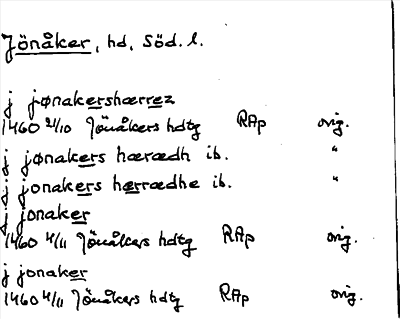 Jönåker, hd, Söd. l.
j jønakershærrez
1460 21/10 Jönåkers hdtg RAp orig.
j jønakers hæraedh ib. "
j jonakers hærrædhe ib. "
j jonaker
1460 4/11 Jönåkers hdtg RAp orig.
j jonaker
1460 4/11 Jönåkers hdtg RAp orig.